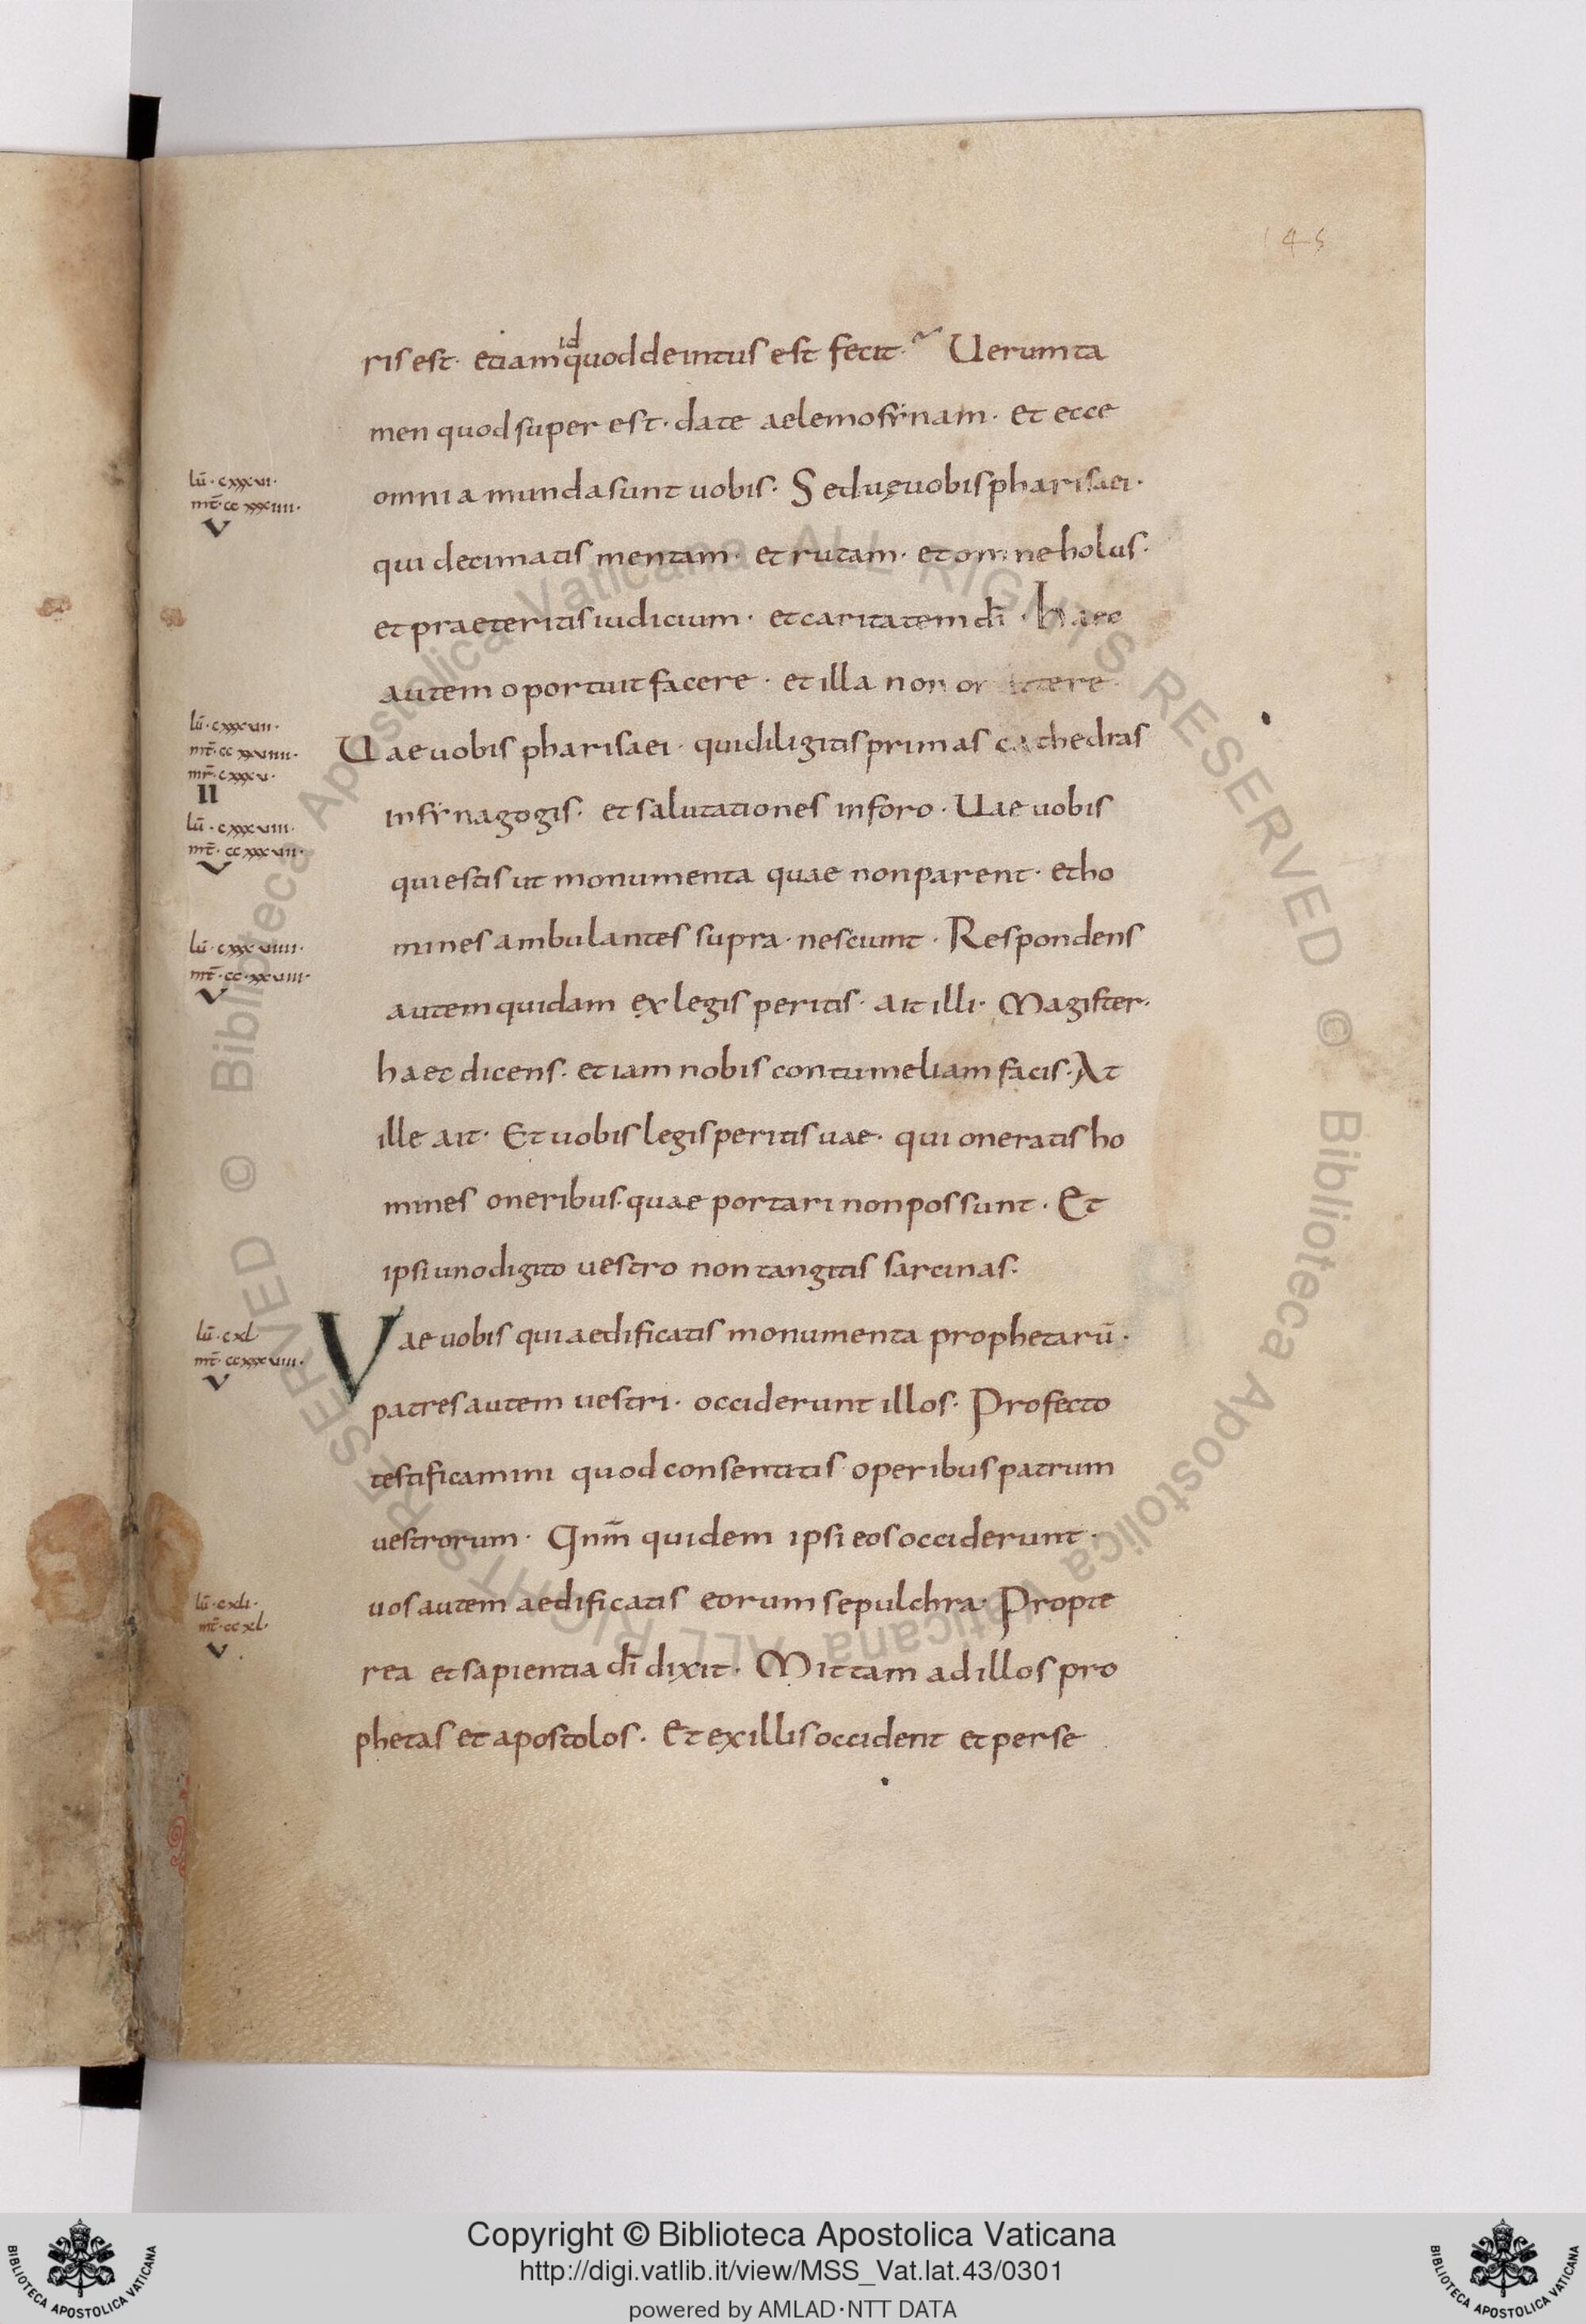 145
ris est· etiam id quod deintus est fecit· Uerumta
men quod super est· date aelemosynam· et ecce
lū· cxxxvi·
omnia munda sunt uobis· Sed uę uobis pharisaei·
V
qui decimatis mentam· et rutam· et omne holus·
et praeteritis iudicium· et caritatem dī· haec
autem oportuit facere· et illa non
lū· cxxxvii·
Uae uobis pharisaei· qui diligitis primas cathedras
mr̄· cxxxv·
II
in synagogis· et salutationes in foro· Uae uobis
lū· cxxxviii·
mt̄· ccxxxvii·
V
qui estis ut monumenta quae non parent· et ho
lū· cxxxviiii·
mines ambulantes supra· nesciunt· Respondens
V
autem quidam ex legis peritis· ait illi· Magister·
haec dicens· etiam nobis contumeliam facis· At
ille ait· Et uobis legis peritis uae· qui oneratis ho
mines oneribus· quae portari non possunt· Et
ipsi uno digito uestro non tangitis sarcinas·
lū· cxl
Vae uobis qui aedificatis monumenta prophetarū·
mt̄· ccxxxviii·
V
patres autem uestri· occiderunt illos· Profecto
testificamini quod consentitis operibus patrum
uestrorum· Qnm̄ quidem ipsi eos occiderunt·
lū· cxli·
uos autem aedificatis eorum sepulchra· Propte
mt̄· ccxl·
V
rea et sapientia dī dixit· Mittam ad illos pro
phetas et apostolos· Et ex illis occident et perse
© Biblioteca Apostolica Vaticana ALL RIGHTS RESERVED © Biblioteca Apostolica Vaticana ALL RIGHTS RESERVED
Copyright © Biblioteca Apostolica Vaticana
http://digi.vatlib.it/view/MSS_Vat.lat.43/0301
powered by AMLAD·NTT DATA
BIBLIOTECA APOSTOLICA VATICANA
BIBLIOTECA APOSTOLICA VATICANA